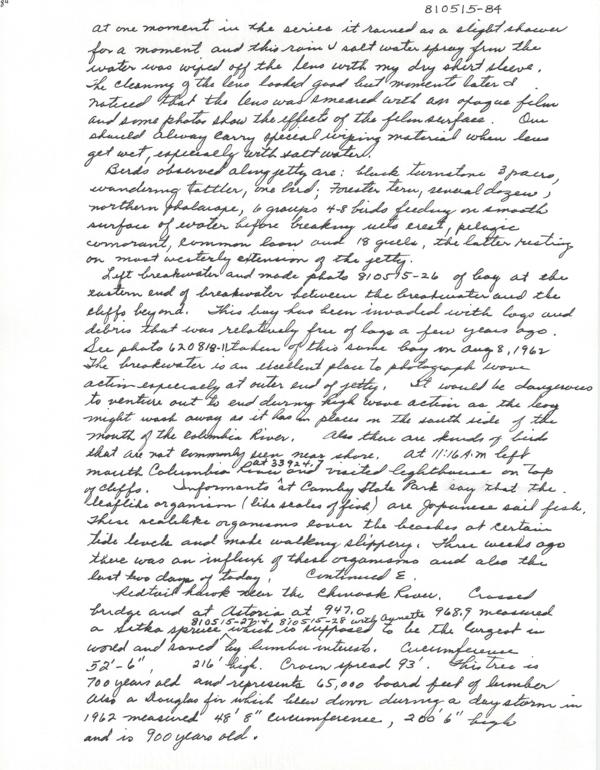 810515-84
at one moment in the series it rained as a slight shower
for a moment and this rain & salt water spray from the
water was wiped off the lens with my dry shirt sleeve.
The cleaning of the lens looked good but moments later I
noticed that the lens was smeared with an opaque film
and some photos show the effects of the film surface. One
should alway carry special wiping material when lens
get wet, especially with salt water.
Birds observed along jetty are: black turnstone 3 pairs,
wandering tattler, one bird; Forester tern, several dozen,
northern phalarope, 6 groups 4-8 birds feeding on smooth
surface of water before breaking into crest, pelagic
cormorant, common loon and 18 gulls, the latter resting
on most westerly extension of the jetty.
Left breakwater and made photo 810515-26 of bay at the
eastern end of breakwater between the breakwater and the
cliffs beyond. This bay has been invaded with logs and
debris that was relatively free of logs a few years ago.
See photo 620818-11 taken of this same bay on Aug 8, 1962
The breakwater is an excellent place to photograph wave
action especially at outer end of jetty. It would be dangerous
to venture out to end during high wave action as the
might wash away as it has in places on the south side of the
mouth of the Columbia River. Also there are kinds of birds
that are not commonly seen near shore. At 11:16 A.m left
mouth Columbia River at 33924.7 and visited lighthouse on top
of cliffs. Informants at Camby State Park say that the
leaflike organism (like scales of fish) are Japanese sail fish.
These scalelike organisms cover the beaches at certain
tide levels and made walking slippery. Three weeks ago
there was an influx of these organisms and also the
last two days of today. Continued E.
Redtail hawk near the Chinook River. Crossed
bridge and at Astoria at 947.0 968.9 measured
810515-27+, 810515-28 with Annette
a Sitka spruce which is supposed to be the largest in
world and saved by lumber interests. Circumference
52'-6", 216' high. Crown spread 93'. This tree is
700 years old and represents 65,000 board feet of lumber
Also a Douglas fir which blew down during a day storm in
1962 measured 48' 8" circumference, 200' 6" high
and is 900 years old.